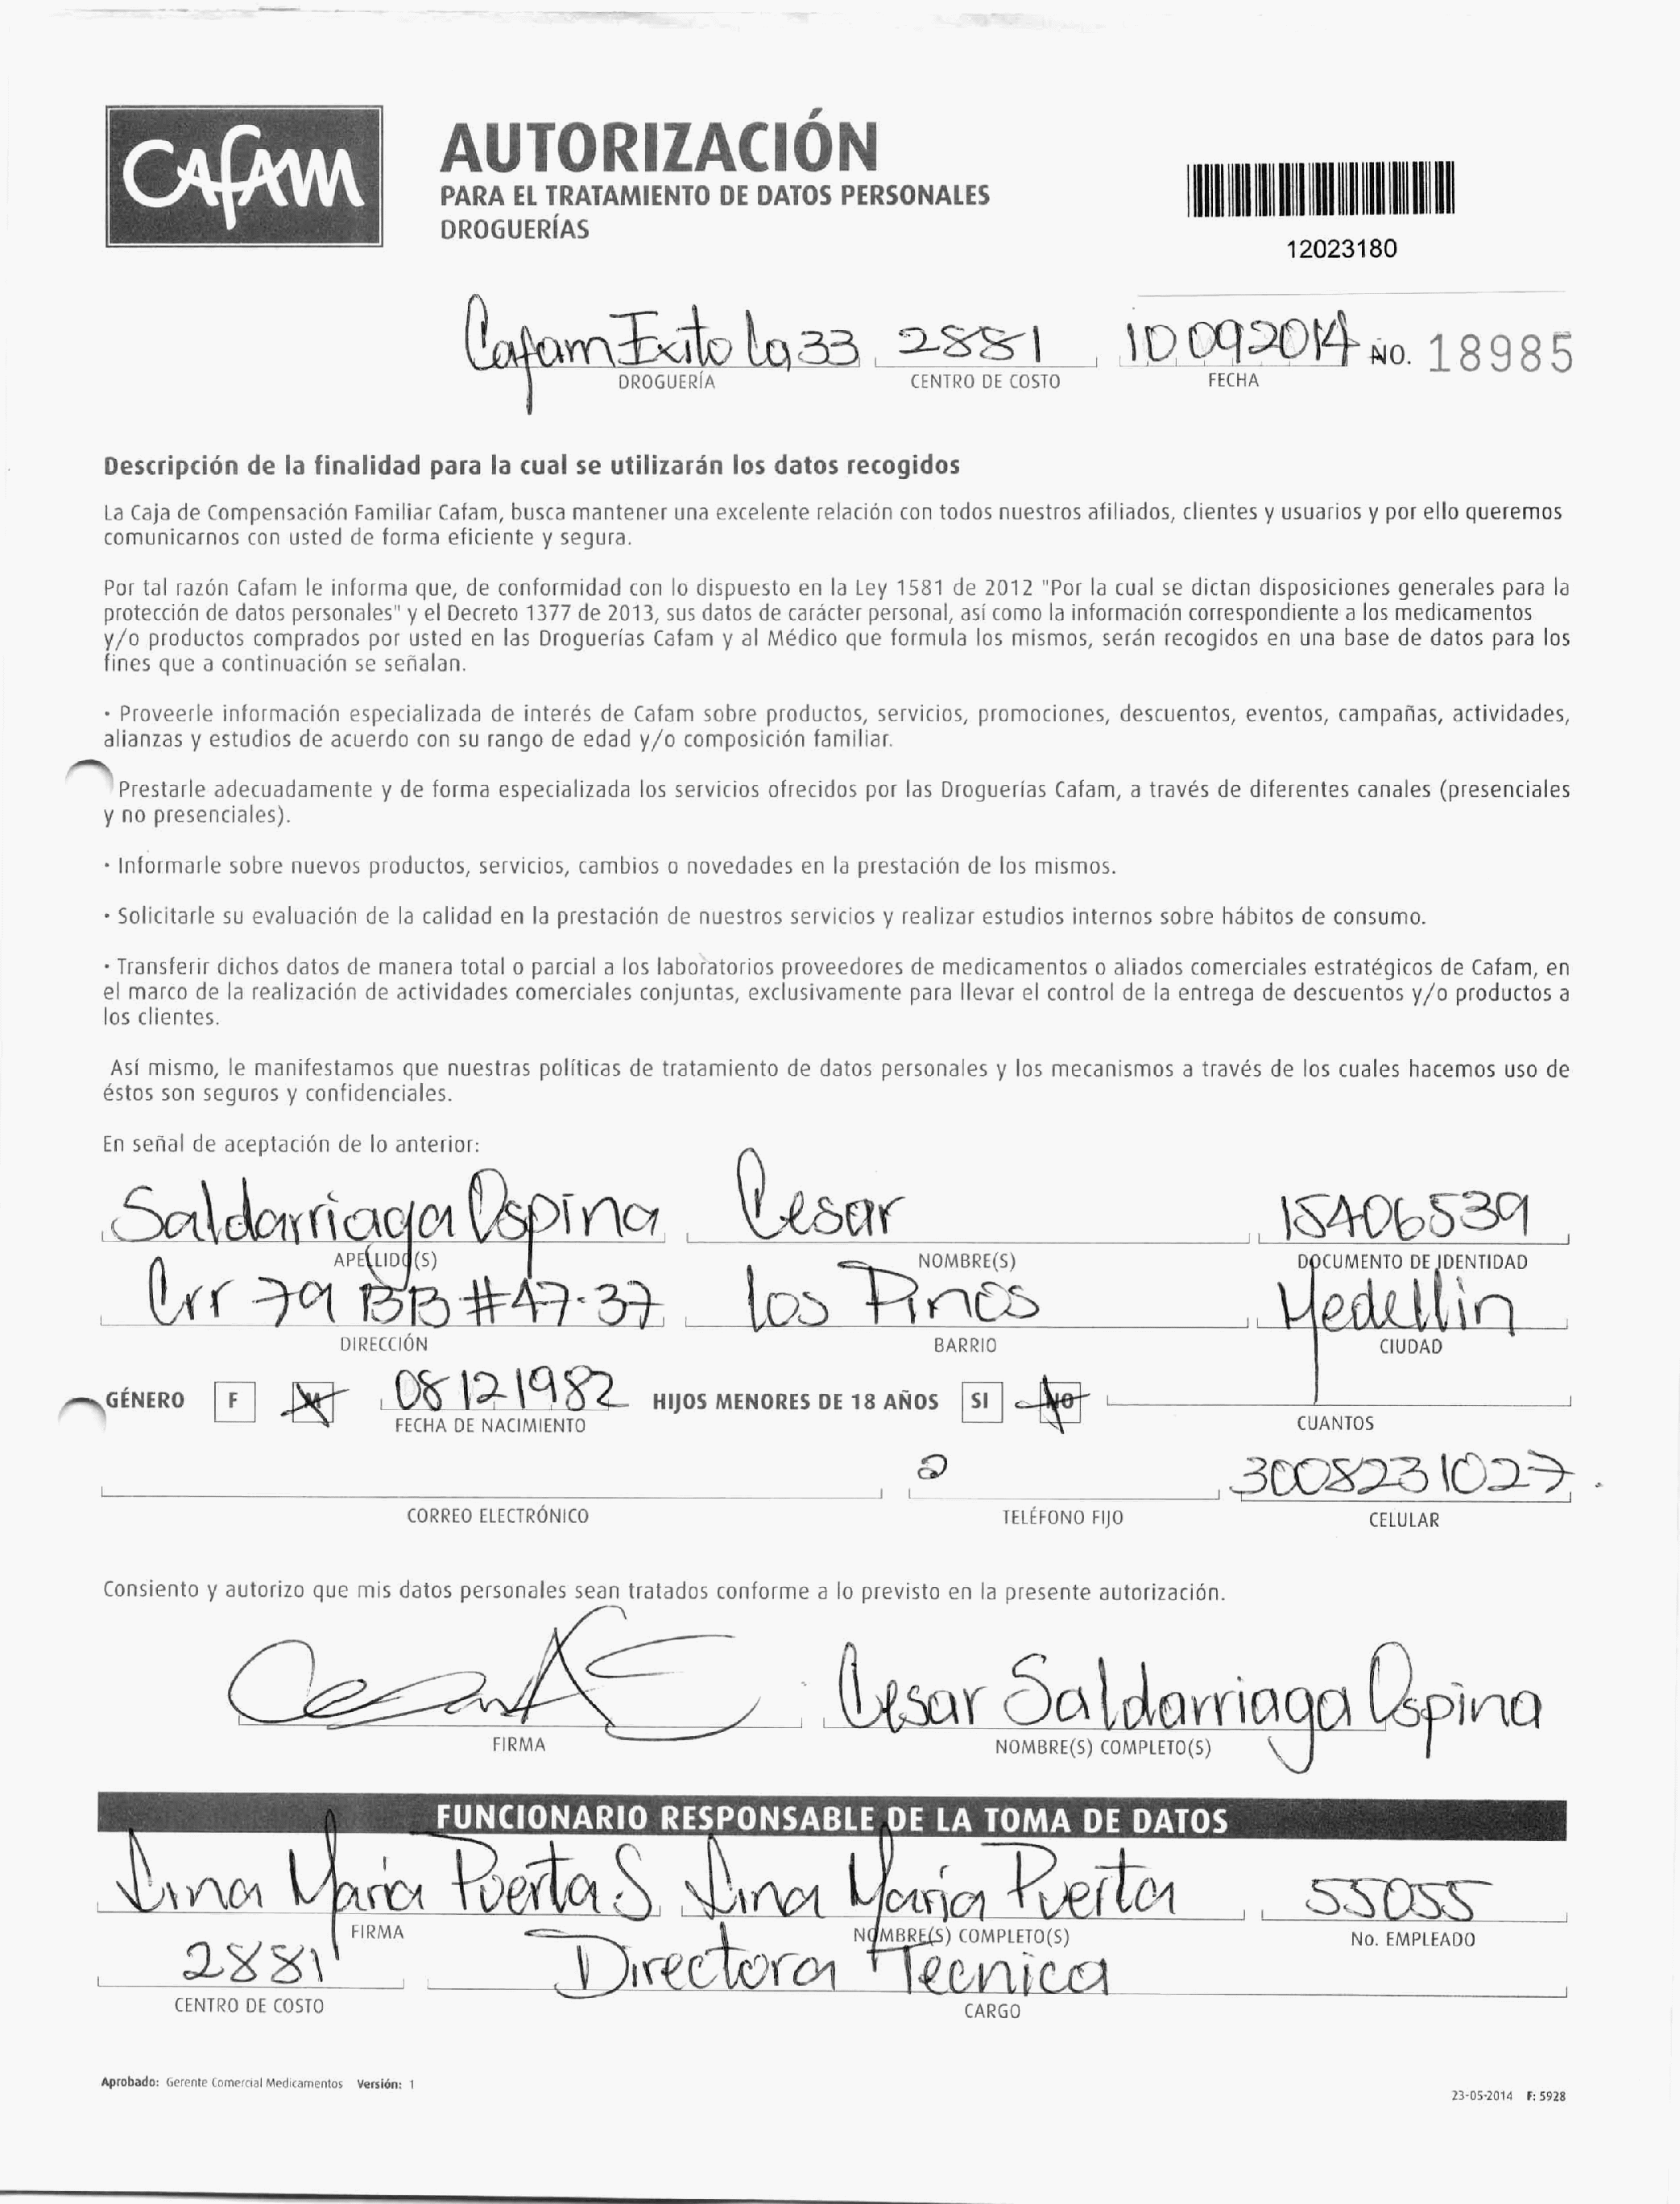 Cafam
AUTORIZACIÓN
PARA EL TRATAMIENTO DE DATOS PERSONALES
DROGUERÍAS
12023180
Cafam Exito la 33 2881 10 09 2014 NO. 18985
DROGUERÍA CENTRO DE COSTO FECHA
Descripción de la finalidad para la cual se utilizarán los datos recogidos
La Caja de Compensación Familiar Cafam, busca mantener una excelente relación con todos nuestros afiliados, clientes y usuarios y por ello queremos
comunicarnos con usted de forma eficiente y segura.
Por tal razón Cafam le informa que, de conformidad con lo dispuesto en la Ley 1581 de 2012 "Por la cual se dictan disposiciones generales para la
protección de datos personales" y el Decreto 1377 de 2013, sus datos de carácter personal, así como la información correspondiente a los medicamentos
y/o productos comprados por usted en las Droguerías Cafam y al Médico que formula los mismos, serán recogidos en una base de datos para los
fines que a continuación se señalan.
• Proveerle información especializada de interés de Cafam sobre productos, servicios, promociones, descuentos, eventos, campañas, actividades,
alianzas y estudios de acuerdo con su rango de edad y/o composición familiar.
Prestarle adecuadamente y de forma especializada los servicios ofrecidos por las Droguerías Cafam, a través de diferentes canales (presenciales
y no presenciales).
• Informarle sobre nuevos productos, servicios, cambios o novedades en la prestación de los mismos.
• Solicitarle su evaluación de la calidad en la prestación de nuestros servicios y realizar estudios internos sobre hábitos de consumo.
• Transferir dichos datos de manera total o parcial a los laboratorios proveedores de medicamentos o aliados comerciales estratégicos de Cafam, en
el marco de la realización de actividades comerciales conjuntas, exclusivamente para llevar el control de la entrega de descuentos y/o productos a
los clientes.
Así mismo, le manifestamos que nuestras políticas de tratamiento de datos personales y los mecanismos a través de los cuales hacemos uso de
éstos son seguros y confidenciales.
En señal de aceptación de lo anterior:
Saldarriaga Ospina Cesar 15406539
APELLIDO(S) NOMBRE(S) DOCUMENTO DE IDENTIDAD
Crr 79 BB # 47-37 los Pinos Medellin
DIRECCIÓN BARRIO CIUDAD
GÉNERO F M 08 12 1982 HIJOS MENORES DE 18 AÑOS SI NO
FECHA DE NACIMIENTO CUANTOS
3008231027
CORREO ELECTRÓNICO TELÉFONO FIJO CELULAR
Consiento y autorizo que mis datos personales sean tratados conforme a lo previsto en la presente autorización.
Cesar Saldarriaga Ospina
FIRMA NOMBRE(S) COMPLETO(S)
FUNCIONARIO RESPONSABLE DE LA TOMA DE DATOS
Lina Maria Puerta S Lina Maria Puerta 55055
FIRMA NOMBRE(S) COMPLETO(S) No. EMPLEADO
2881 Directora Tecnica
CENTRO DE COSTO CARGO
Aprobado: Gerente Comercial Medicamentos Versión: 1
23-05-2014 F: 5928